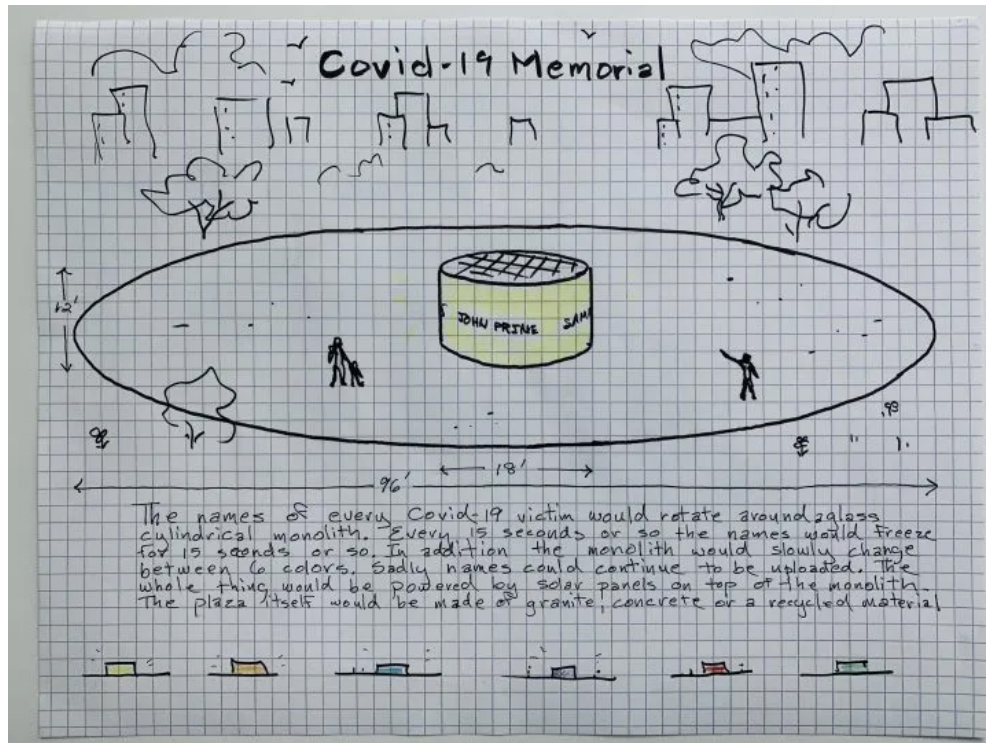 Covid-19 Memorial
12'
S JOHN PRINE SAM
18'
96'
The names of every Covid-19 victim would rotate around a glass
cylindrical monolith. Every 15 seconds or so the names would freeze
for 15 seconds or so. In addition the monolith would slowly change
between 6 colors. Sadly names could continue to be uploaded. The
whole thing would be powered by solar panels on top of the monolith.
The plaza itself would be made of granite, concrete or a recycled material